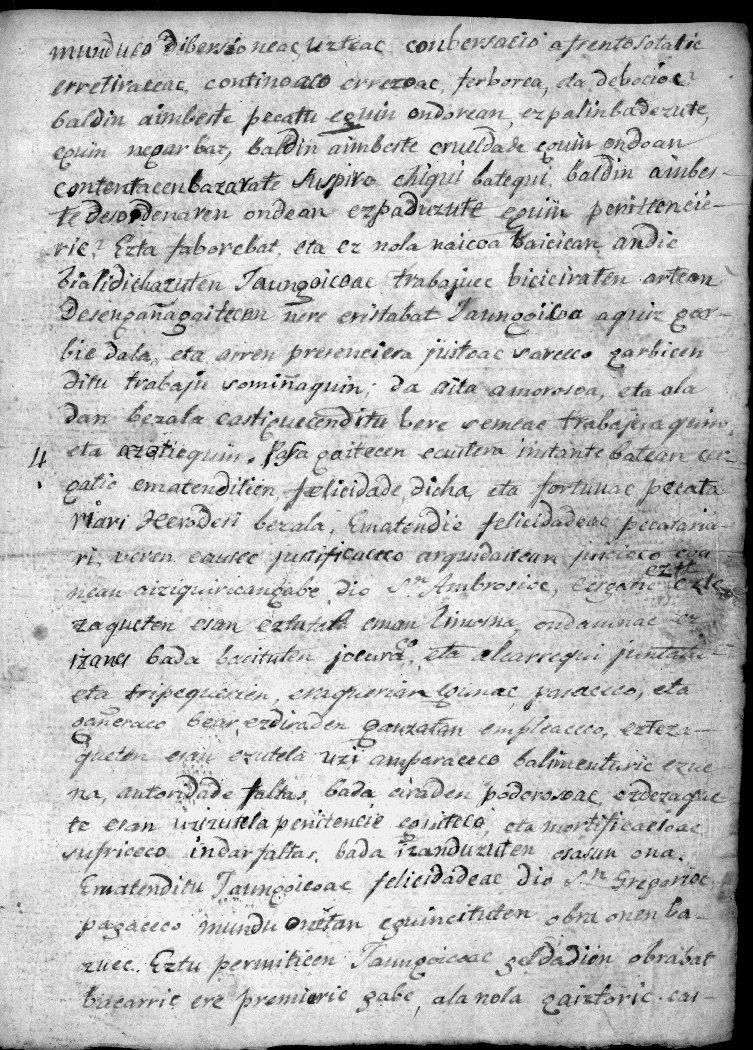 munduco diberzioneac, uzteac, conbersacio afrentosotatic
erretiraceac, continoaco errezoac, ferborea, eta debocioc?
baldin aimbeste pecatu eguin ondorean, ezpalinbadezute,
eguin negar bat, baldin aimbeste crueldade eguin ondoan
contentacenbazarate suspiro chiqui batequi, baldin aimbes-
te desordenaren ondean ezpaduzute eguin penitencie-
ric? Ezta faborebat, eta ez nola naicoa baicican andie
bialidichazuten Jaungoicoac trabajuec biciciraten artean
Desengañagaitecen nere cristabat Jaungoicoa aquiz gar-
bie dala, eta arren presenciera justoac sarceco garbicen
ditu trabaju somiñaquin; da aita amorosoa, eta ala
dan bezala castiguecenditu bere semeac trabajeraquin,
eta azotiequin. Pasa gaitecen ecustera instante batean cer-
4. gatic ematenditien felicidade, dicha, eta fortunac pecata
riari Herodesi bezala. Ematendie felicidadeac pecataria-
ri, veren causec justificaceco arquidaitean juicioco egu
nean aiziquiricangabe, dio Sn. Ambrosioc, cergatic ezte
zaqueten esan eztutela eman limosna, ondasunac ez
izanez bada bacituten jocuraco, eta alcarrequi juntatu-
eta tripequerien, eraquerian egunac pasaceco, eta
gañeraco bear ezdiraden gauzatan empleaceco, ezteza-
queten esan ezutela uzi amparaceco balimenturic ezue-
na, autoridade faltas, bada ciraden poderosoac, ezdezaque
te esan uzuztela penitencie eguiteco, eta mortificacioac
sufriceco indar faltas, bada izanduzuten osasun ona.
Ematenditu Jaungoicoac felicidadeac dio Sn. Gregorioc
pagaceco mundu onetan eguincituten obra onen ba-
zuec. Eztu permiticen Jaungoicoac geldadien obrabat
bacarric ere premioric gabe, ala nola gaiztoric cas-